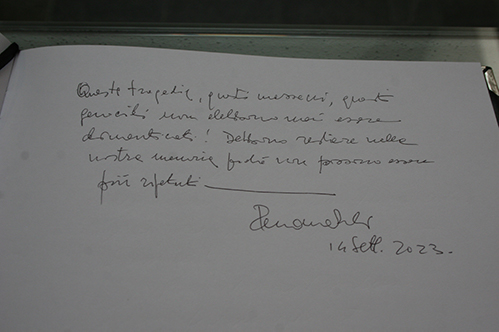 Queste tragedie, questi massacri, questi
genocidi non debbono mai essere
dimenticati! Debbono restare nella
nostra memoria perché non possono essere
più ripetuti
14 Sett. 2023.